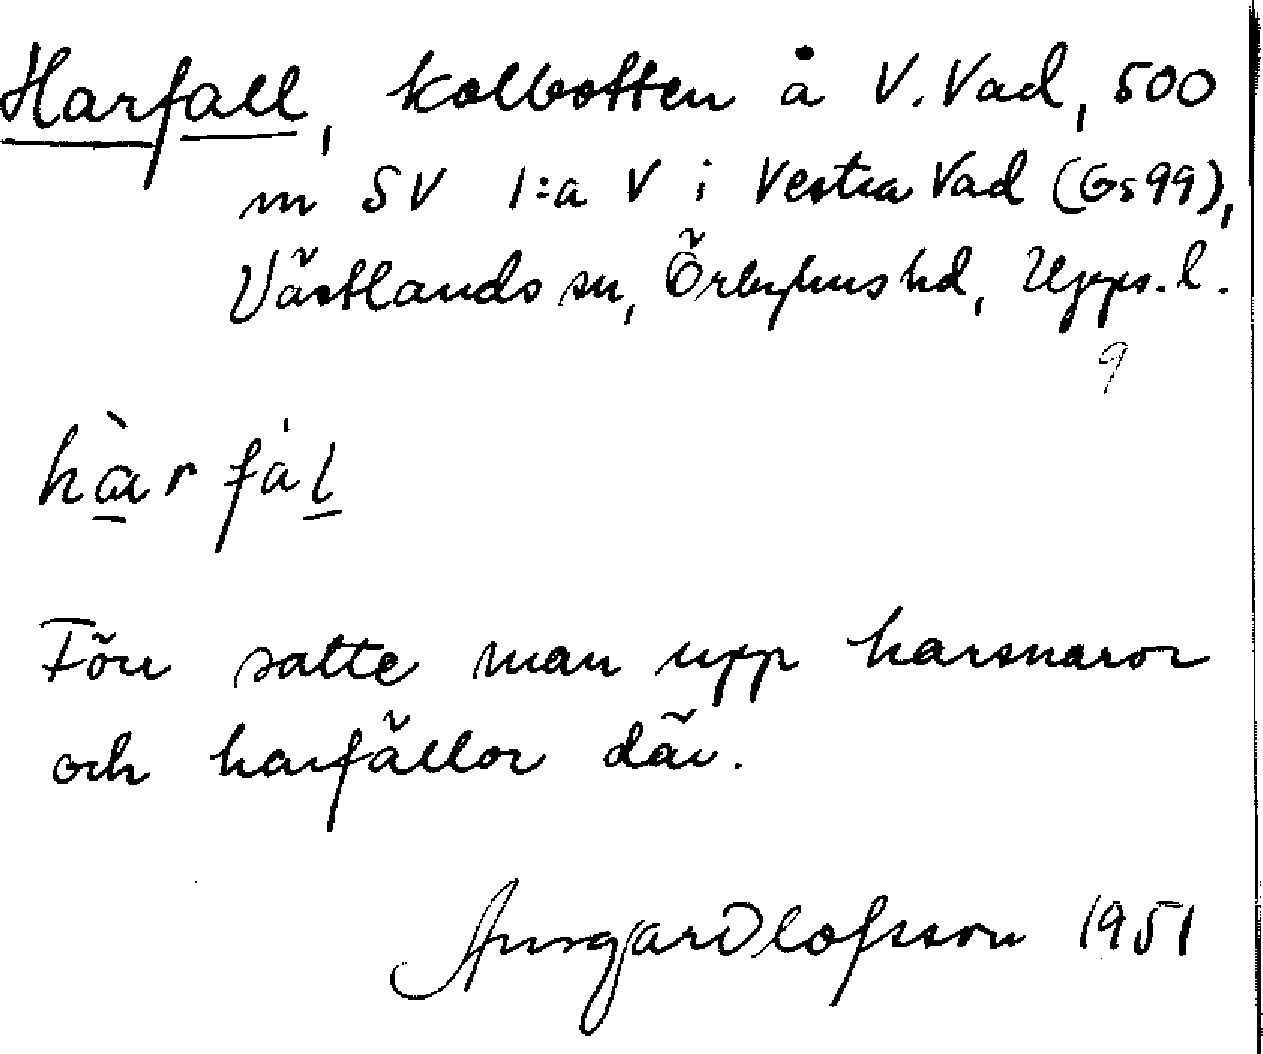 Harfall, kolbotten å V. Vad, 500
m SV 1:a V i Vestra Vad (Gs 99),
Västlands sn, Örbyhus hd, Upps. l.
9
hàr fàl
Förr satte man upp harsnaror
och harfällor där.
Ansgar Olofsson 1951